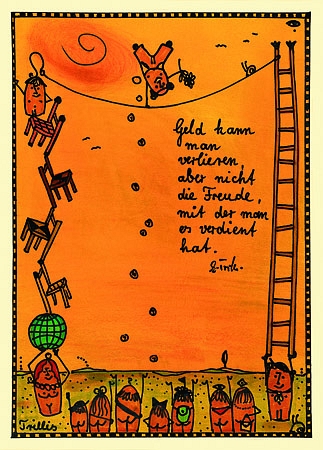 Geld kann
man
verlieren,
aber nicht
die Freude,
mit der man
es verdient
hat.
Trellis